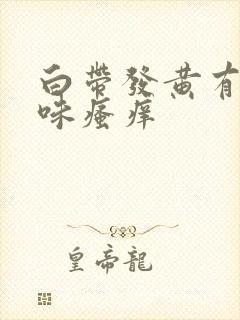 白帶發黄有
味瘙痒
皇帝龍